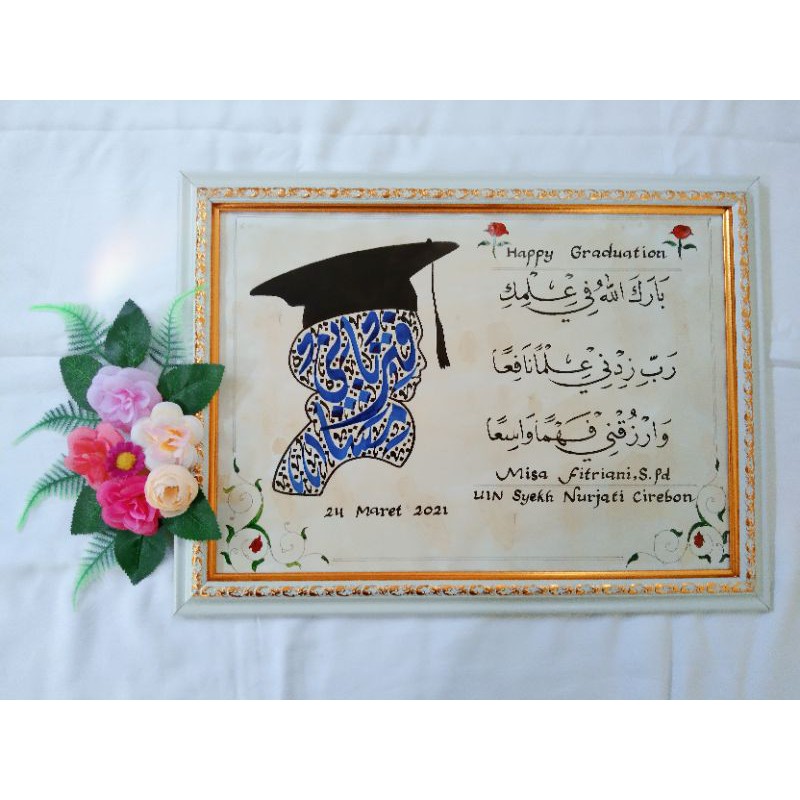 Happy Graduation
بَارَكَ اللهُ فِي عِلْمِكِ
رَبِّ زِدْنِي عِلْمًا نَافِعًا
وَارْزُقْنِي فَهْمًا وَاسِعًا
Misa Fitriani, S.Pd
UIN Syekh Nurjati Cirebon
24 Maret 2021